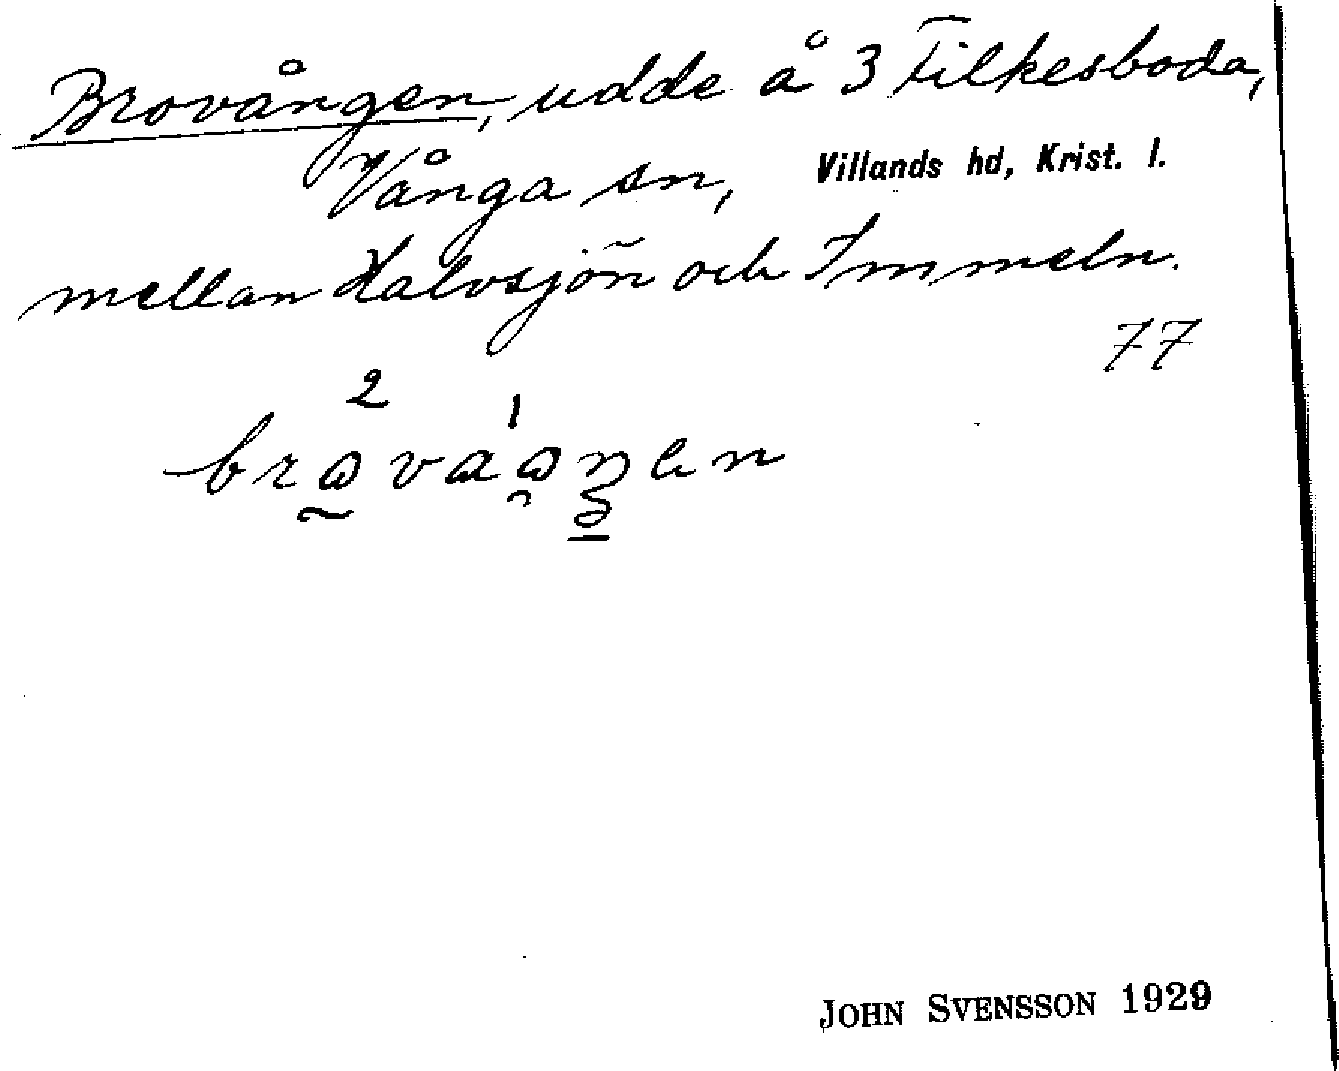 Brovången, udde å 3 Filkesboda,
Vånga sn, Villands hd, Krist. l.
mellan Halvsjön och Immeln.
77
JOHN SVENSSON 1929